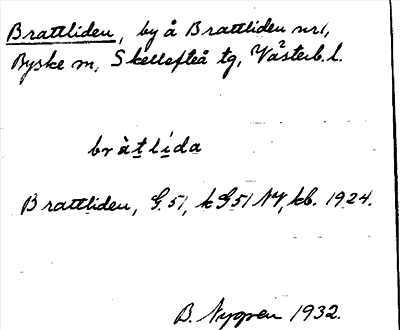 Brattliden, by å Brattliden nr 1,
Byske sn, Skellefteå tg, Västerb. l.
bràtlìda
Brattliden, G. 51, k G 51 NV, kb. 1924.
B. Nygren 1932.